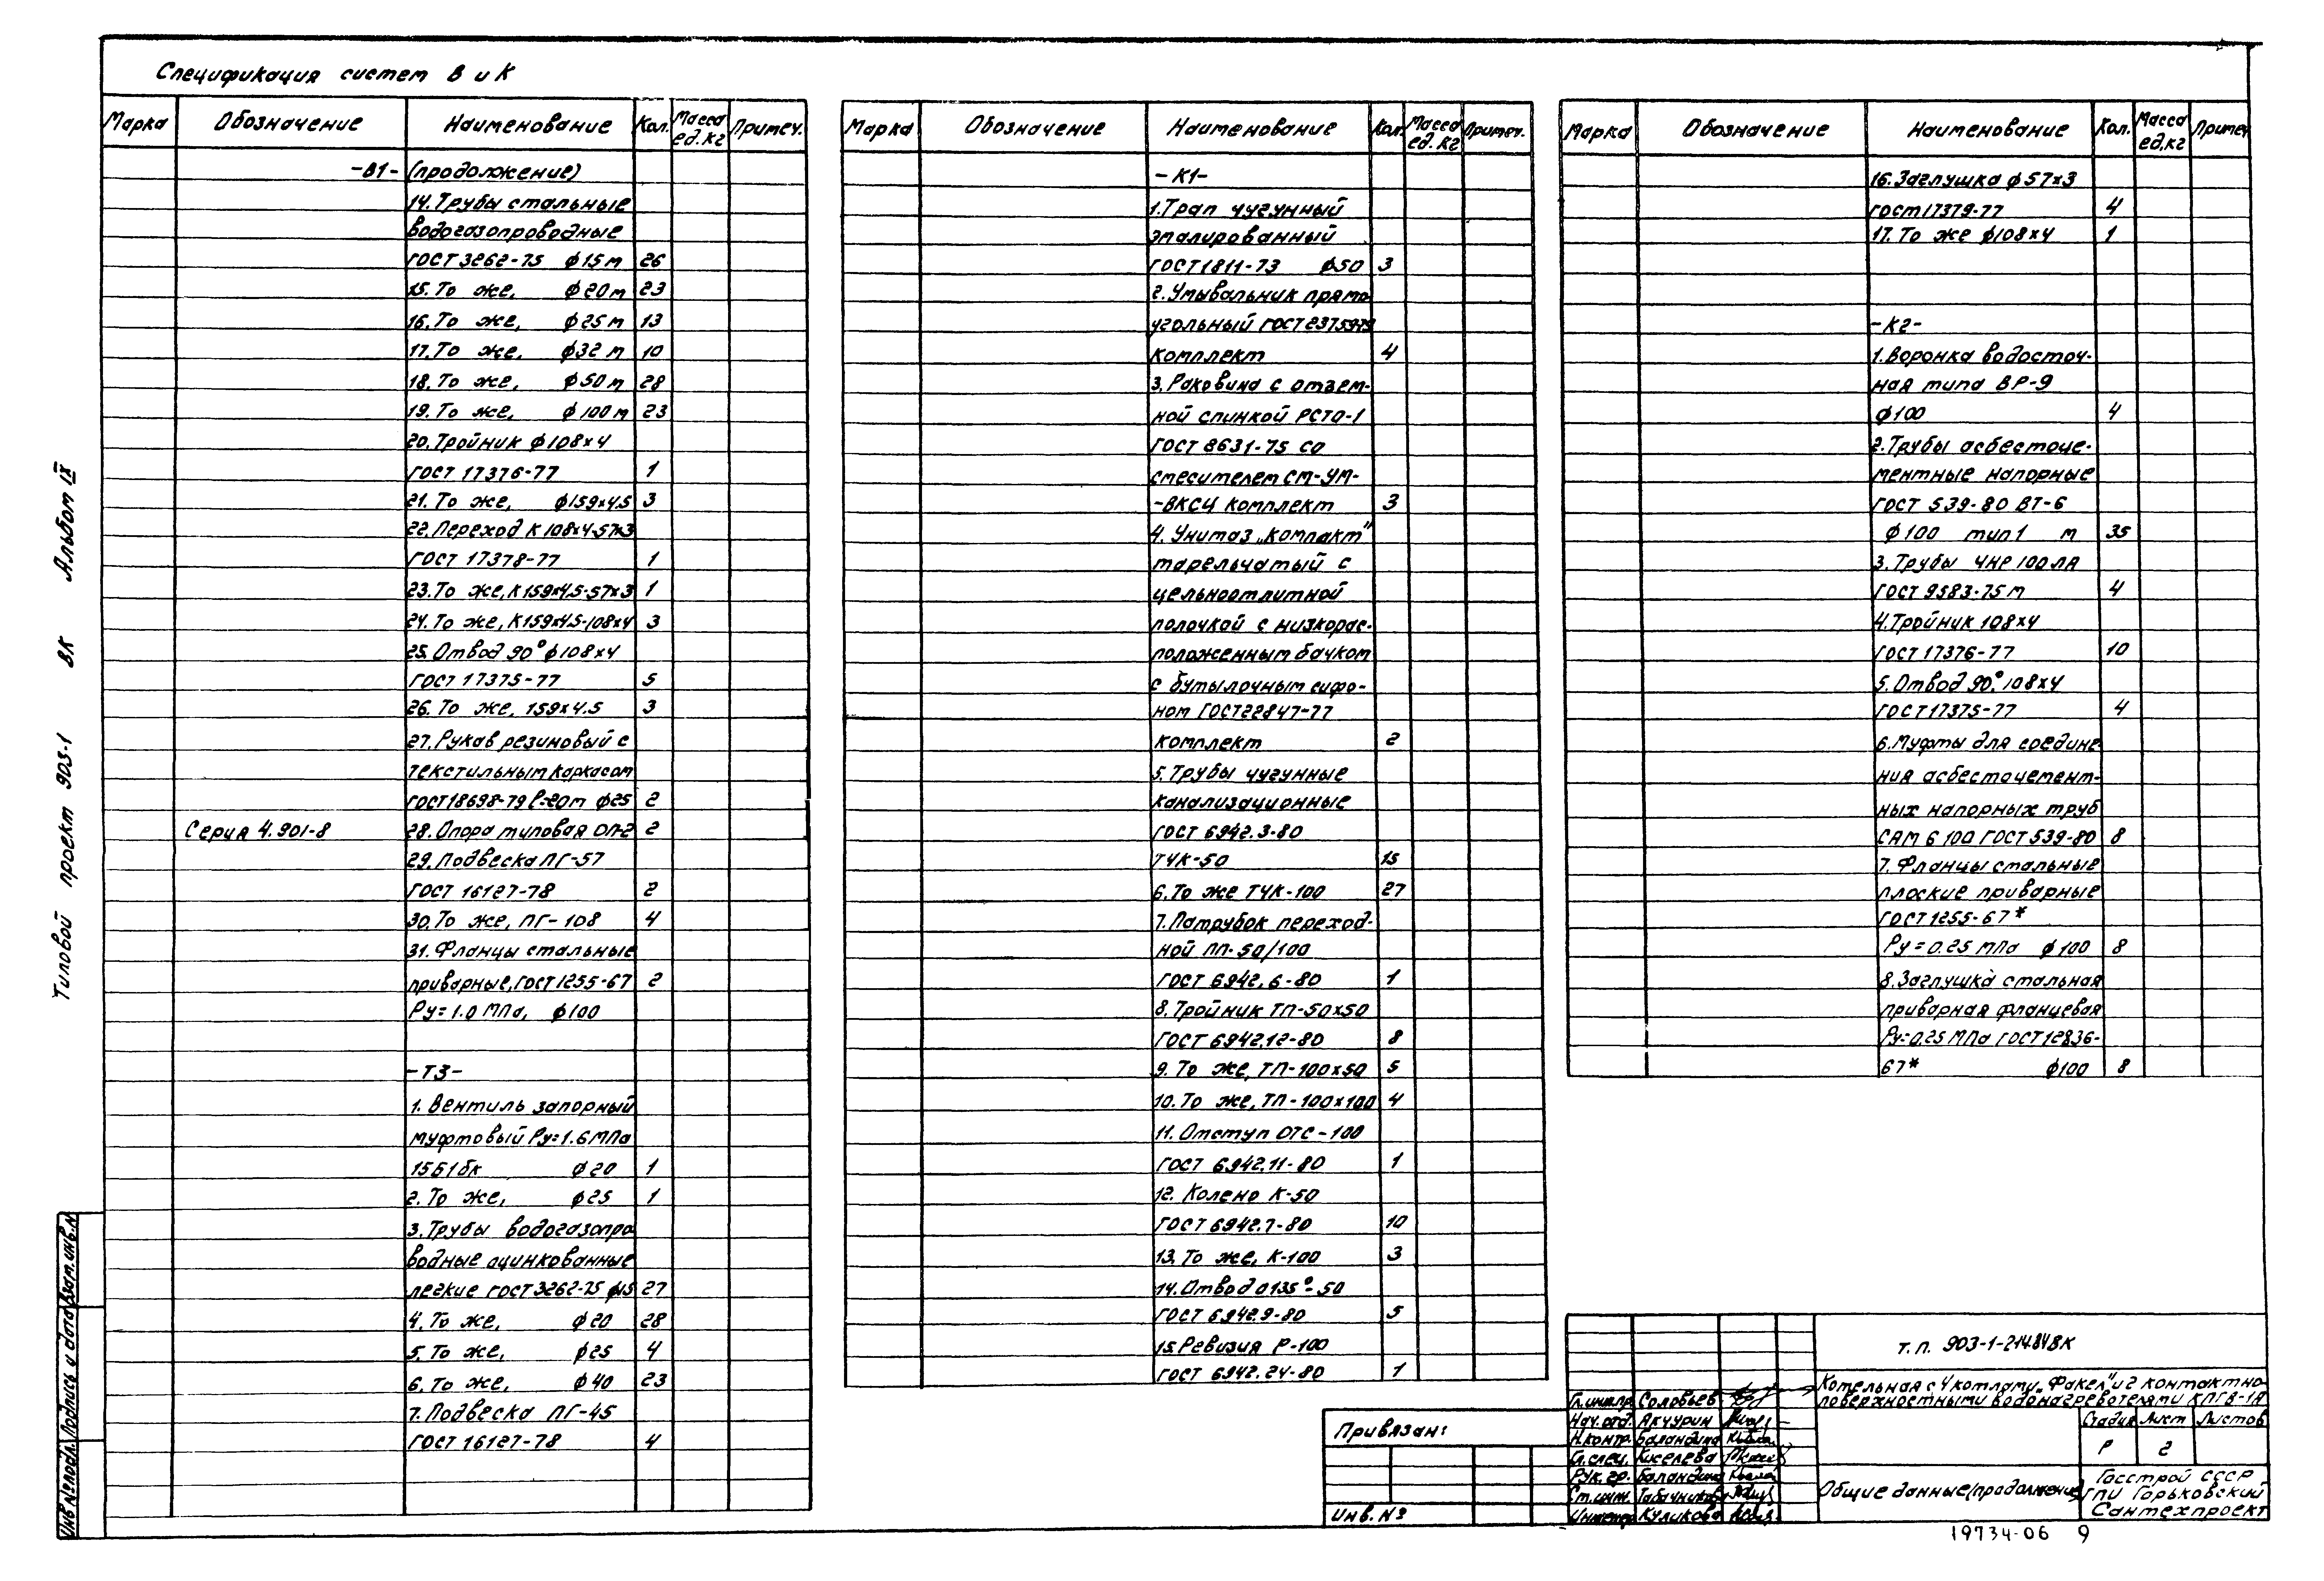 Спецификация систем В и К
Марка Обозначение Наименование Кол. Масса ед.кг Примеч.
-В1- (продолжение)
14. Трубы стальные
водогазопроводные
ГОСТ 3262-75 ф15 м 26
15. То же, ф20 м 23
16. То же, ф25 м 13
17. То же, ф32 м 10
18. То же, ф50 м 28
19. То же, ф100 м 23
20. Тройник ф108х4
ГОСТ 17376-77 1
21. То же, ф159х4.5 3
22. Переход К 108х4-57х3
ГОСТ 17378-77 1
23. То же, К159х4.5-57х3 1
24. То же, К159х4.5-108х4 3
25. Отвод 90° ф108х4
ГОСТ 17375-77 5
26. То же, 159х4.5 3
27. Рукав резиновый с
текстильным каркасом
ГОСТ 18698-79 ℓ=20м ф25 2
Серия 4.901-8 28. Опора типовая ОП-2 2
29. Подвеска ПГ-57
ГОСТ 16127-78 2
30. То же, ПГ-108 4
31. Фланцы стальные
приварные, ГОСТ 1255-67 2
Ру=1.0 МПа, ф100
-Т3-
1. Вентиль запорный
муфтовый Ру=1.6 МПа
15Б1бк ф20 1
2. То же, ф25 1
3. Трубы водогазопро
водные оцинкованные
легкие ГОСТ 3262-75 ф15 27
4. То же, ф20 28
5. То же, ф25 4
6. То же, ф40 23
7. Подвеска ПГ-45
ГОСТ 16127-78 4
Марка Обозначение Наименование Кол. Масса ед.кг Примеч.
-К1-
1. Трап чугунный
эмалированный
ГОСТ 1811-73 ф50 3
2. Умывальник прямо
угольный ГОСТ 23759-79
комплект 4
3. Раковина с отъем-
ной спинкой РСТО-1
ГОСТ 8631-75 со
смесителем СМ-УМ-
-ВКСЦ комплект 3
4. Унитаз „Компакт"
тарельчатый с
цельноотлитной
полочкой с низкорас-
положенным бачком
с бутылочным сифо-
ном ГОСТ 22847-77
комплект 2
5. Трубы чугунные
канализационные
ГОСТ 6942.3-80
ТЧК-50 15
6. То же ТЧК-100 27
7. Патрубок переход-
ной ПП-50/100
ГОСТ 6942.6-80 1
8. Тройник ТП-50х50
ГОСТ 6942.12-80 8
9. То же, ТП-100х50 5
10. То же, ТП-100х100 4
11. Отступ ОТС-100
ГОСТ 6942.11-80 1
12. Колено К-50
ГОСТ 6942.7-80 10
13. То же, К-100 3
14. Отвод О135°-50
ГОСТ 6942.9-80 5
15. Ревизия Р-100
ГОСТ 6942.24-80 1
Марка Обозначение Наименование Кол. Масса ед.кг Примеч
16. Заглушка ф57х3
ГОСТ 17379-77 4
17. То же ф108х4 1
-К2-
1. Воронка водосточ-
ная типа ВР-9
ф100 4
2. Трубы асбестоце-
ментные напорные
ГОСТ 539-80 ВТ-6
ф100 тип 1 м 35
3. Трубы ЧНР 100 ЛА
ГОСТ 9583-75 м 4
4. Тройник 108х4
ГОСТ 17376-77 10
5. Отвод 90° 108х4
ГОСТ 17375-77 4
6. Муфты для соедине
ния асбестоцемент-
ных напорных труб
САМ 6 100 ГОСТ 539-80 8
7. Фланцы стальные
плоские приварные
ГОСТ 1255-67*
Ру=0.25 МПа ф100 8
8. Заглушка стальная
приварная фланцевая
Ру=0.25 МПа ГОСТ 12836-
67* ф100 8
Типовой проект 903-1 ВК Альбом IX
Инв.№подл. Подпись и дата Взам.инв.№
Привязан:
Инв.№
Гл.инж.пр. Соловьев
Нач.отд. Акчурин
Н.контр. Баландина
Гл.спец. Киселева
Рук.гр. Баландина
Ст.инж. Табачникова
Инженер Куликова
Т.п. 903-1-214.84ВК
Котельная с 4 котлами „Факел" и 2 контактно-
поверхностными водонагревателями КПГВ-1А
Стадия Лист Листов
Р 2
Общие данные (продолжение)
Госстрой СССР
ГПИ Горьковский
Сантехпроект
19734-06 9